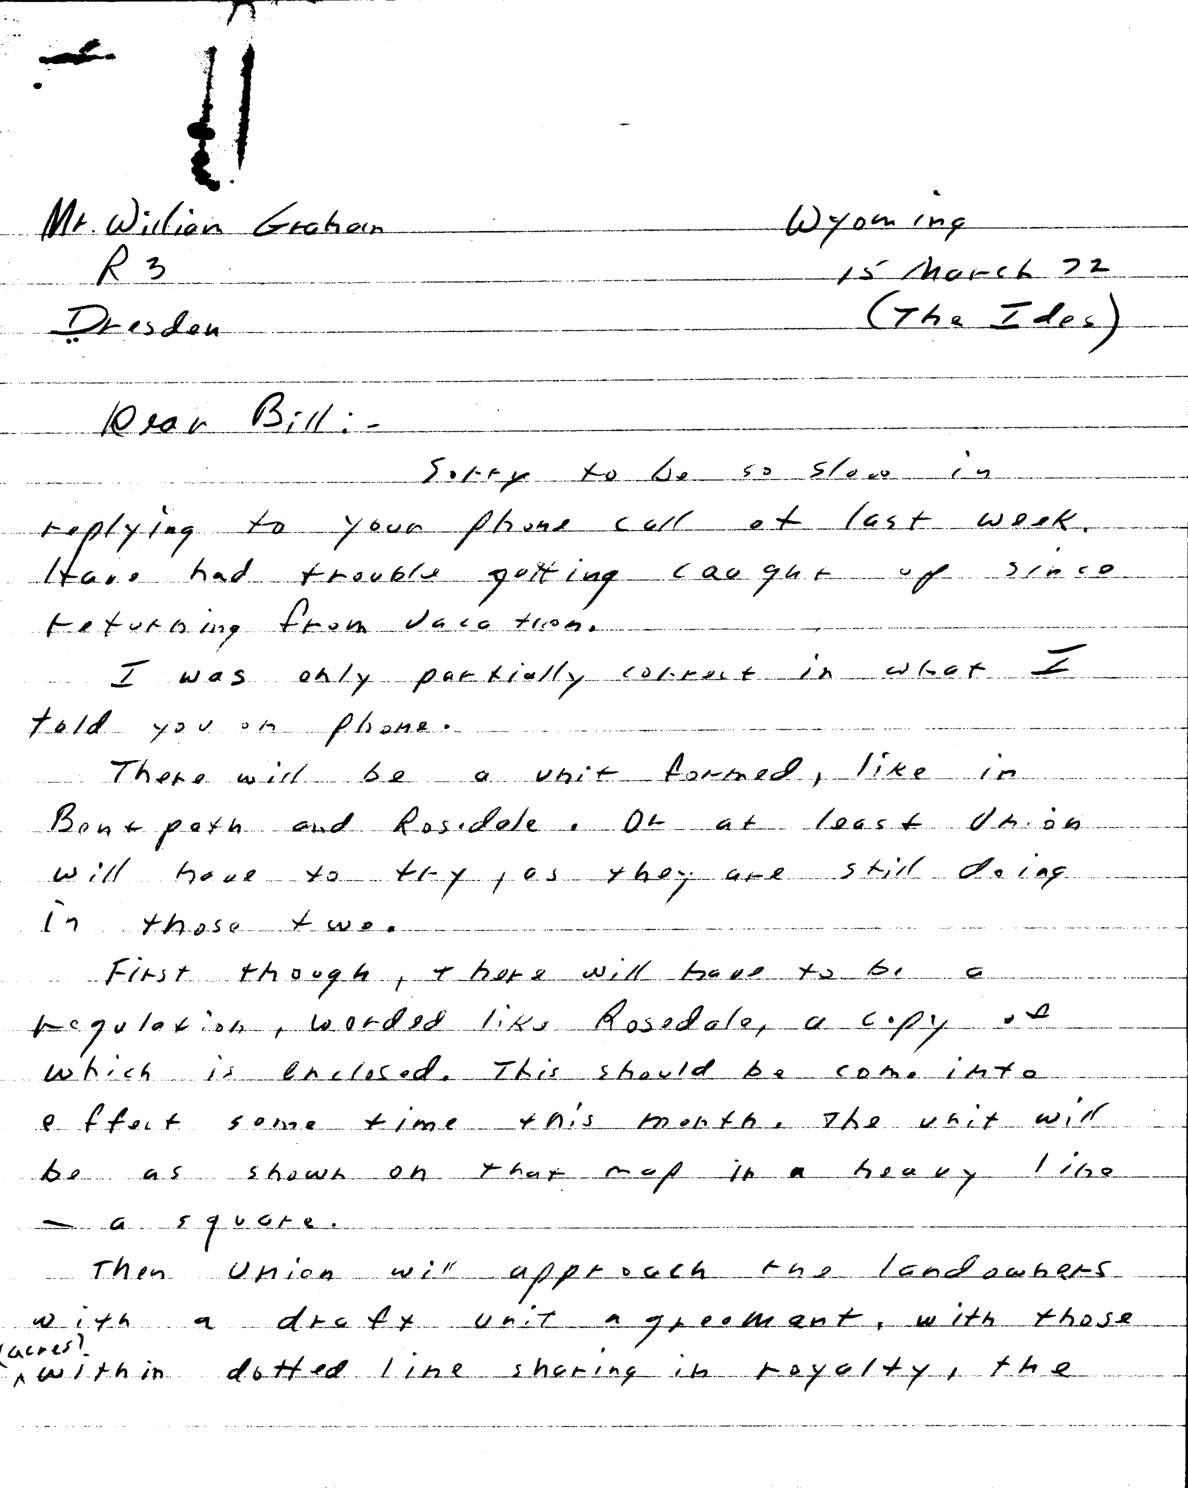 Mr. William Graham
Wyoming
R 3
15 March 72
Dresden
(The Ides)
Dear Bill:-
Sorry to be so slow in
replying to your phone call of last week.
Have had trouble getting caught up since
returning from vacation.
I was only partially correct in what I
told you on phone.
There will be a unit formed, like in
Bentpath and Rosedale. Or at least Union
will have to try, as they are still doing
in those two.
First though, there will have to be a
regulation, worded like Rosedale, a copy of
which is enclosed. This should be come into
effect some time this month. The unit will
be as shown on that map in a heavy line
— a square.
Then Union will approach the landowners
with a draft unit agreement, with those
(acres?)
^ within dotted line sharing in royalty, the